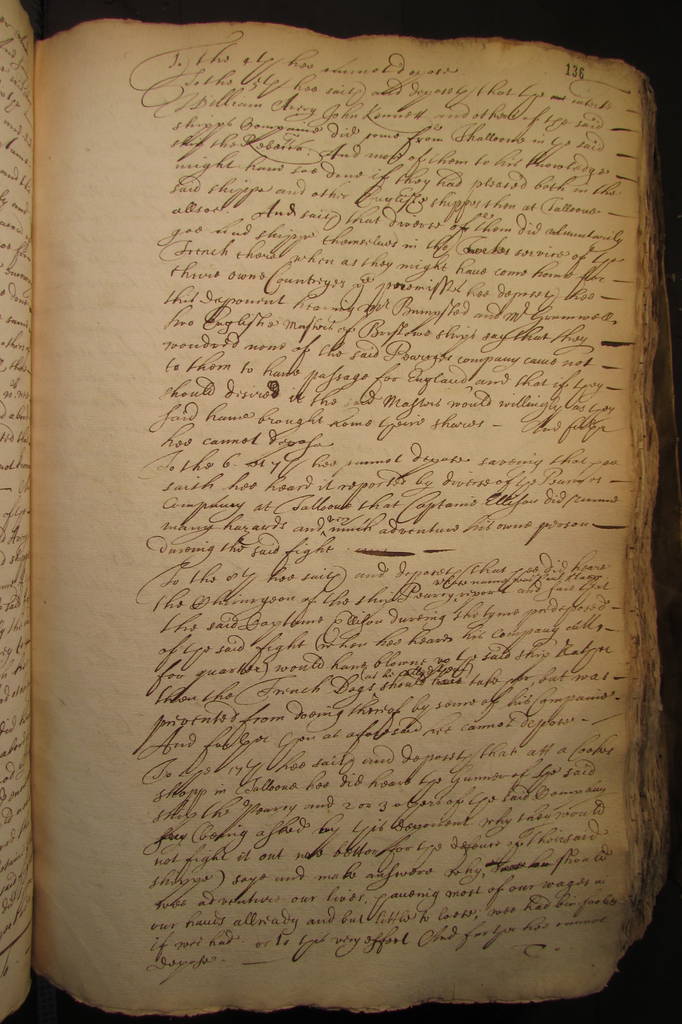 136
To the 4th hee cannot depose
To the 5th hee saith and deposeth that the
William Avery John Kennett and others of the said
shipps Companie did come from Thalloone in the said
ship the Rebecca. And most of them to his knowledge
might have soe done if they had pleased both in the
said shippe and other Englishe shippes then at Talloone
allsoe. And saith that diverse of them did voluntarily
goe and shippe themselves in the service of the
French there when as they might have come home for
theire owne Countrey. hee deposeth hee
this deponent hearing Mr Bumpsted and Mr
two Englishe Masters of ships say that they
wondred none of the said company came not
to them to have passage for England and that if they
should desire it the said Masters would willingly as they
said have brought home theire shares - And further
hee cannot depose
To the 6. hee cannot depose saveing that hee
saith hee heard it reported by diverse of the Pearles
Company at Talloone that Captaine Ellison did runne
many hazards and very much adventure his owne person
dureing the said fight
To the 8th hee saith and deposeth that hee did heare
the Chirurgeon of the ship report and say that
the said Captaine Ellison dureing the tyme predeposed
of the said fight (when hee heard his Company call
for quarter) would have blowne up the said ship rather
then the French Dogs should take her but was
prevented from doeing thereof by some of his Companie
And further then as aforesaid hee cannot depose
To the hee saith and deposeth that att a Cookes
shopp in Talloone hee did heare the Gunner of the said
ship the and 2 or 3 others of the said Company
(being asked by this deponent why they would
not fight it out better for the defence of their said
shippe) saye and make answere Why, should
wee adventure our lives, haveing most of our wages in
our hands allready and but little to loose, wee had bin fooles
if wee had or to the very effect And further hee cannot
depose.